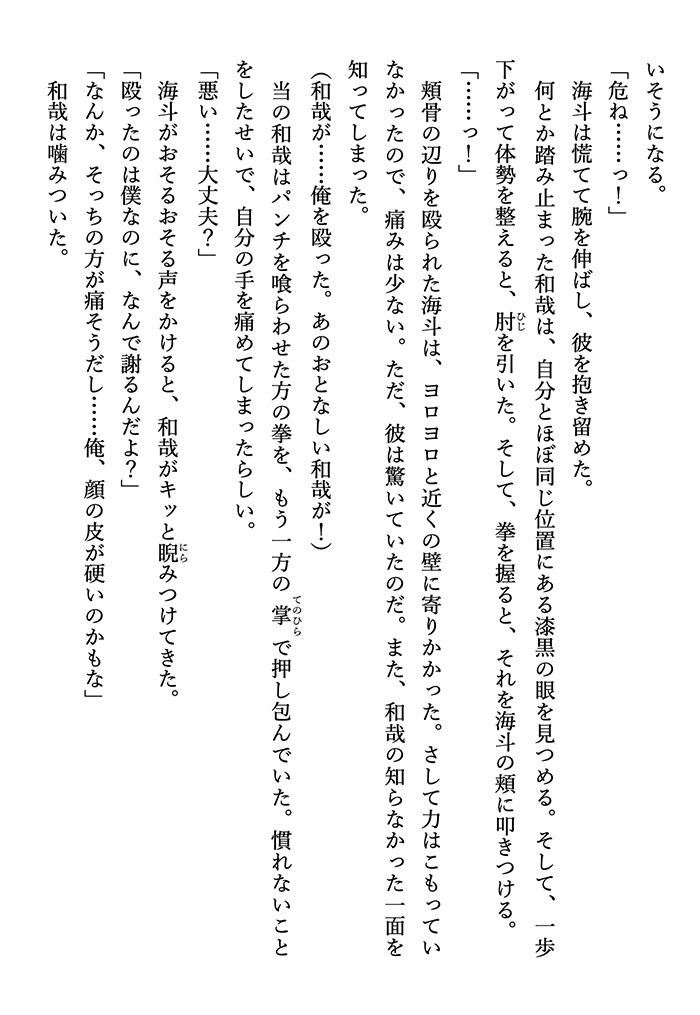 いそうになる。
「危ね……っ！」
海斗は慌てて腕を伸ばし、彼を抱き留めた。
何とか踏み止まった和哉は、自分とほぼ同じ位置にある漆黒の眼を見つめる。そして、一歩
下がって体勢を整えると、肘ひじを引いた。そして、拳を握ると、それを海斗の頬に叩きつける。
「……っ！」
頬骨の辺りを殴られた海斗は、ヨロヨロと近くの壁に寄りかかった。さして力はこもってい
なかったので、痛みは少ない。ただ、彼は驚いていたのだ。また、和哉の知らなかった一面を
知ってしまった。
（和哉が……俺を殴った。あのおとなしい和哉が！）
当の和哉はパンチを喰らわせた方の拳を、もう一方の掌てのひらで押し包んでいた。慣れないこと
をしたせいで、自分の手を痛めてしまったらしい。
「悪い……大丈夫？」
海斗がおそるおそる声をかけると、和哉がキッと睨にらみつけてきた。
「殴ったのは僕なのに、なんで謝るんだよ？」
「なんか、そっちの方が痛そうだし……俺、顔の皮が硬いのかもな」
和哉は噛みついた。